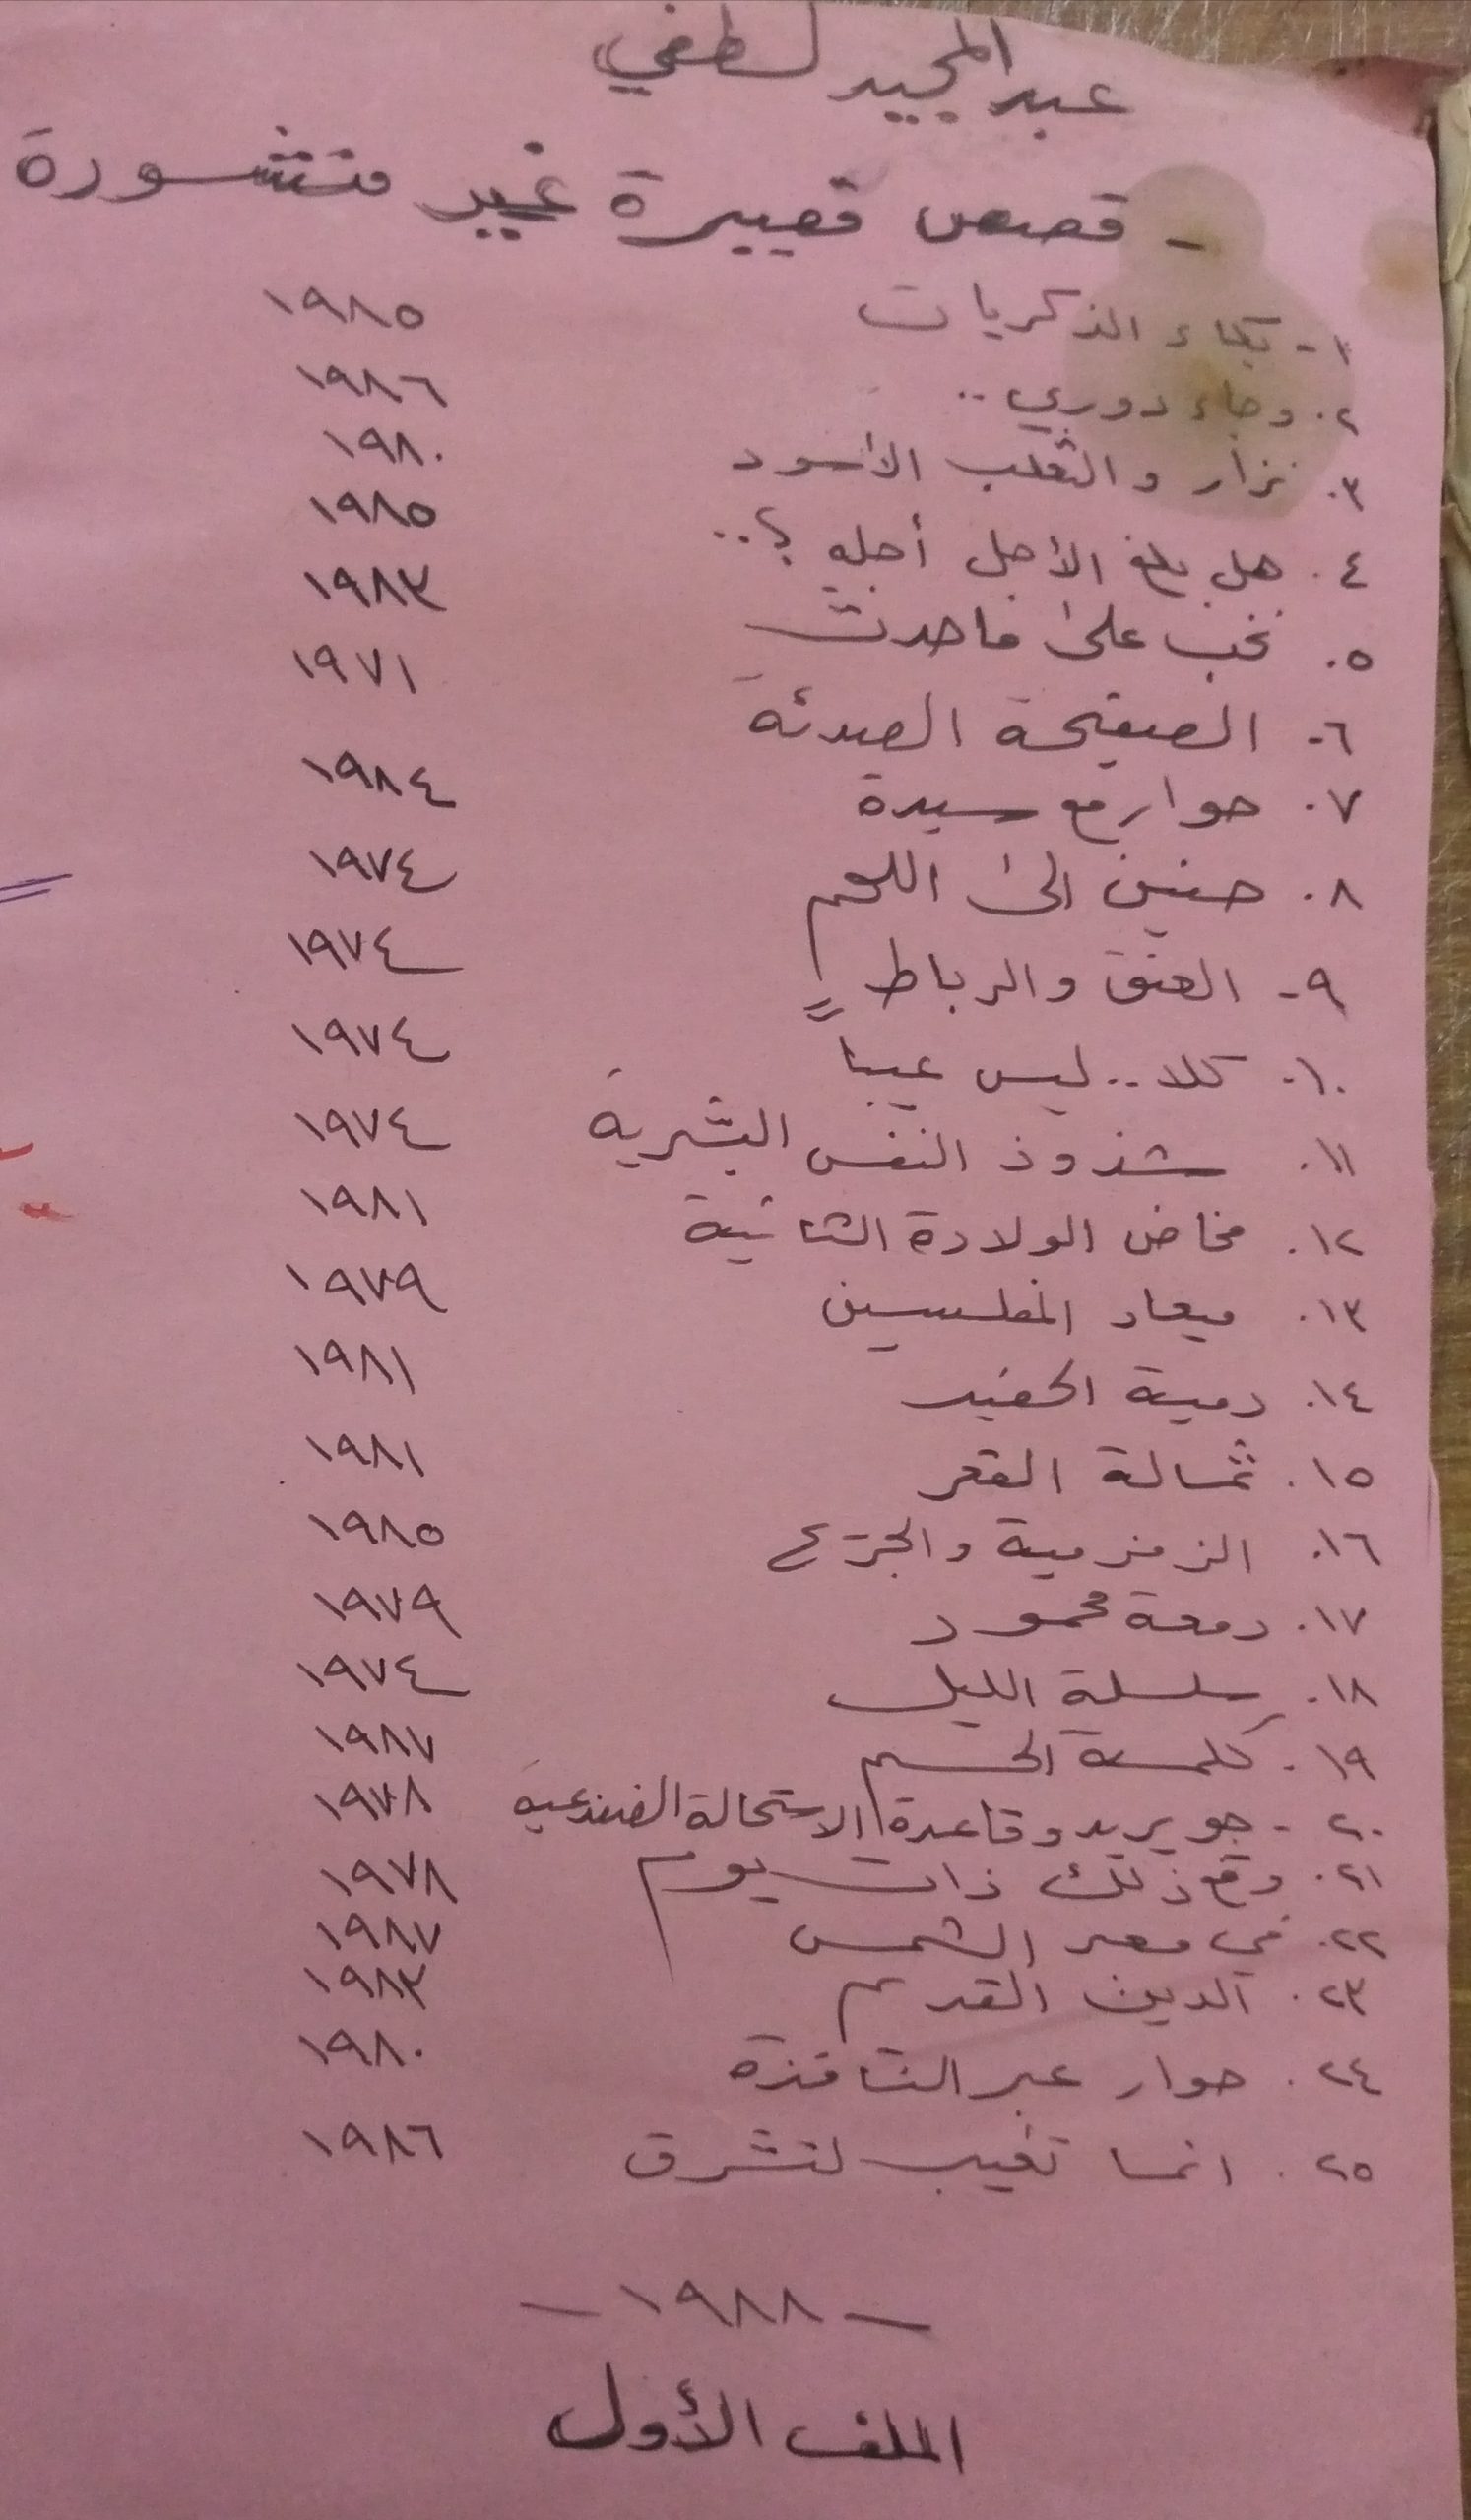 عبد المجيد لطفي
- قصص قصيرة غير منشورة
١- بكاء الذكريات ١٩٨٥
٢. وجاء دوري .. ١٩٨٦
٣. نزار والثعلب الأسود ١٩٨٠
٤. هل بلغ الأجل أجله ؟.. ١٩٨٥
٥. نخب على ماحدث ١٩٨٣
٦- الصفيحة الصدئة ١٩٧١
٧. حوار مع سيدة ١٩٨٤
٨. حنين الى اللحم ١٩٧٤
٩- العنق والرباط ١٩٧٤
١٠- كلا.. ليس عيباً ١٩٧٤
١١. شذوذ النفس البشرية ١٩٧٤
١٢. مخاض الولادة الثانية ١٩٨١
١٣. ميعاد المفلسين ١٩٧٩
١٤. دمية الحفيد ١٩٨١
١٥. ثمالة القعر ١٩٨١
١٦. الزمزمية والجرح ١٩٨٥
١٧. دمعة محمود ١٩٧٩
١٨. سلسلة الليل ١٩٧٤
١٩- كلمة الحسم ١٩٨٧
٢٠- جويريد وقاعدة الاستحالة الضفدعية ١٩٧٨
٢١. وقع ذلك ذات يوم ١٩٧٨
٢٢. في معبر الشمس ١٩٨٧
٢٣. الدين القديم ١٩٨٣
٢٤. حوار عبر النافذة ١٩٨٠
٢٥. انما تغيب لتشرق ١٩٨٦
- ١٩٨٨ -
الملف الأول